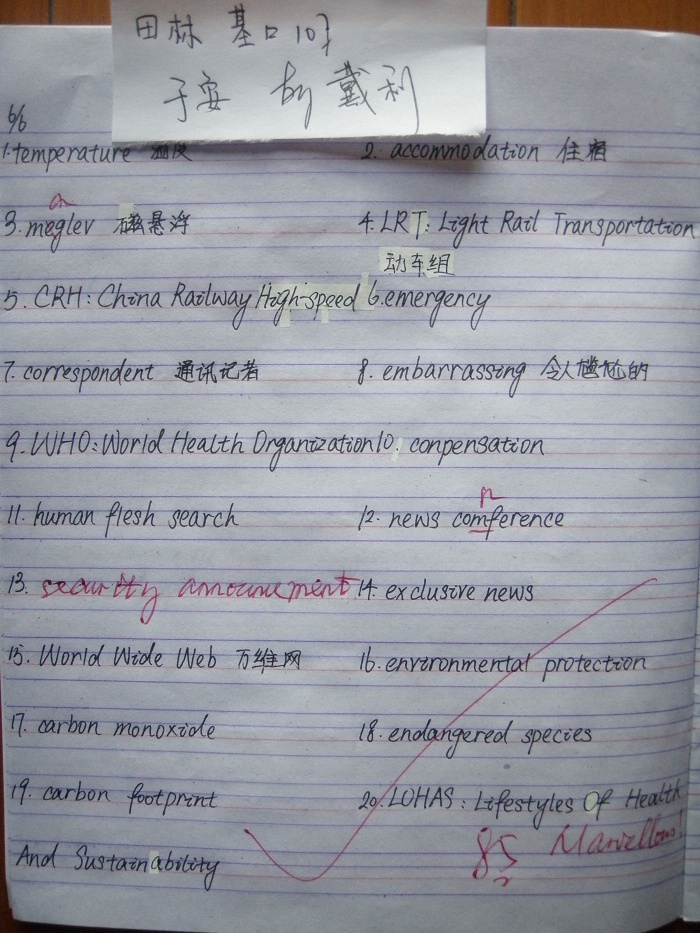 田林 基口 107
子安 by 戴利
6/6
1. temperature 温度 2. accommodation 住宿
a
3. meglev 磁悬浮 4. LRT: Light Rail Transportation
动车组
5. CRH: China Railway High-speed 6. emergency
7. correspondent 通讯记者 8. embarrassing 令人尴尬的
9. WHO: World Health Organization 10. conpensation
n
11. human flesh search 12. news comference
13. security announcement 14. exclusive news
15. World Wide Web 万维网 16. environmental protection
17. carbon monoxide 18. endangered species
19. carbon footprint 20. LOHAS: Lifestyles Of Health
And Sustainability
85 Marvellous!